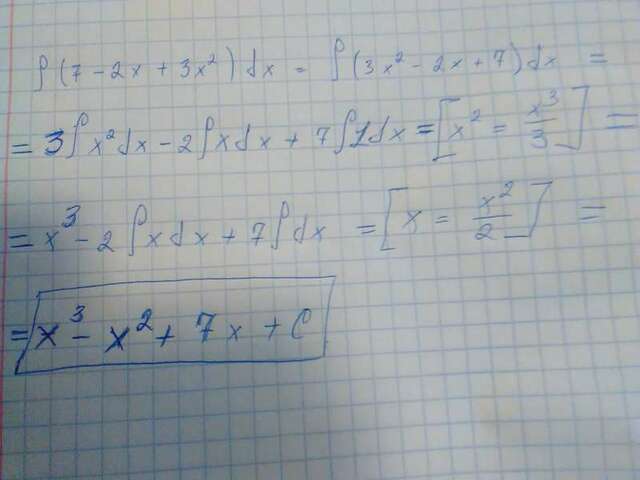 ∫(7 - 2x + 3x²)dx = ∫(3x² - 2x + 7)dx =
= 3∫x²dx - 2∫xdx + 7∫1dx = [x² = x³/3] =
= x³ - 2∫xdx + 7∫dx = [x = x²/2] =
= x³ - x² + 7x + C